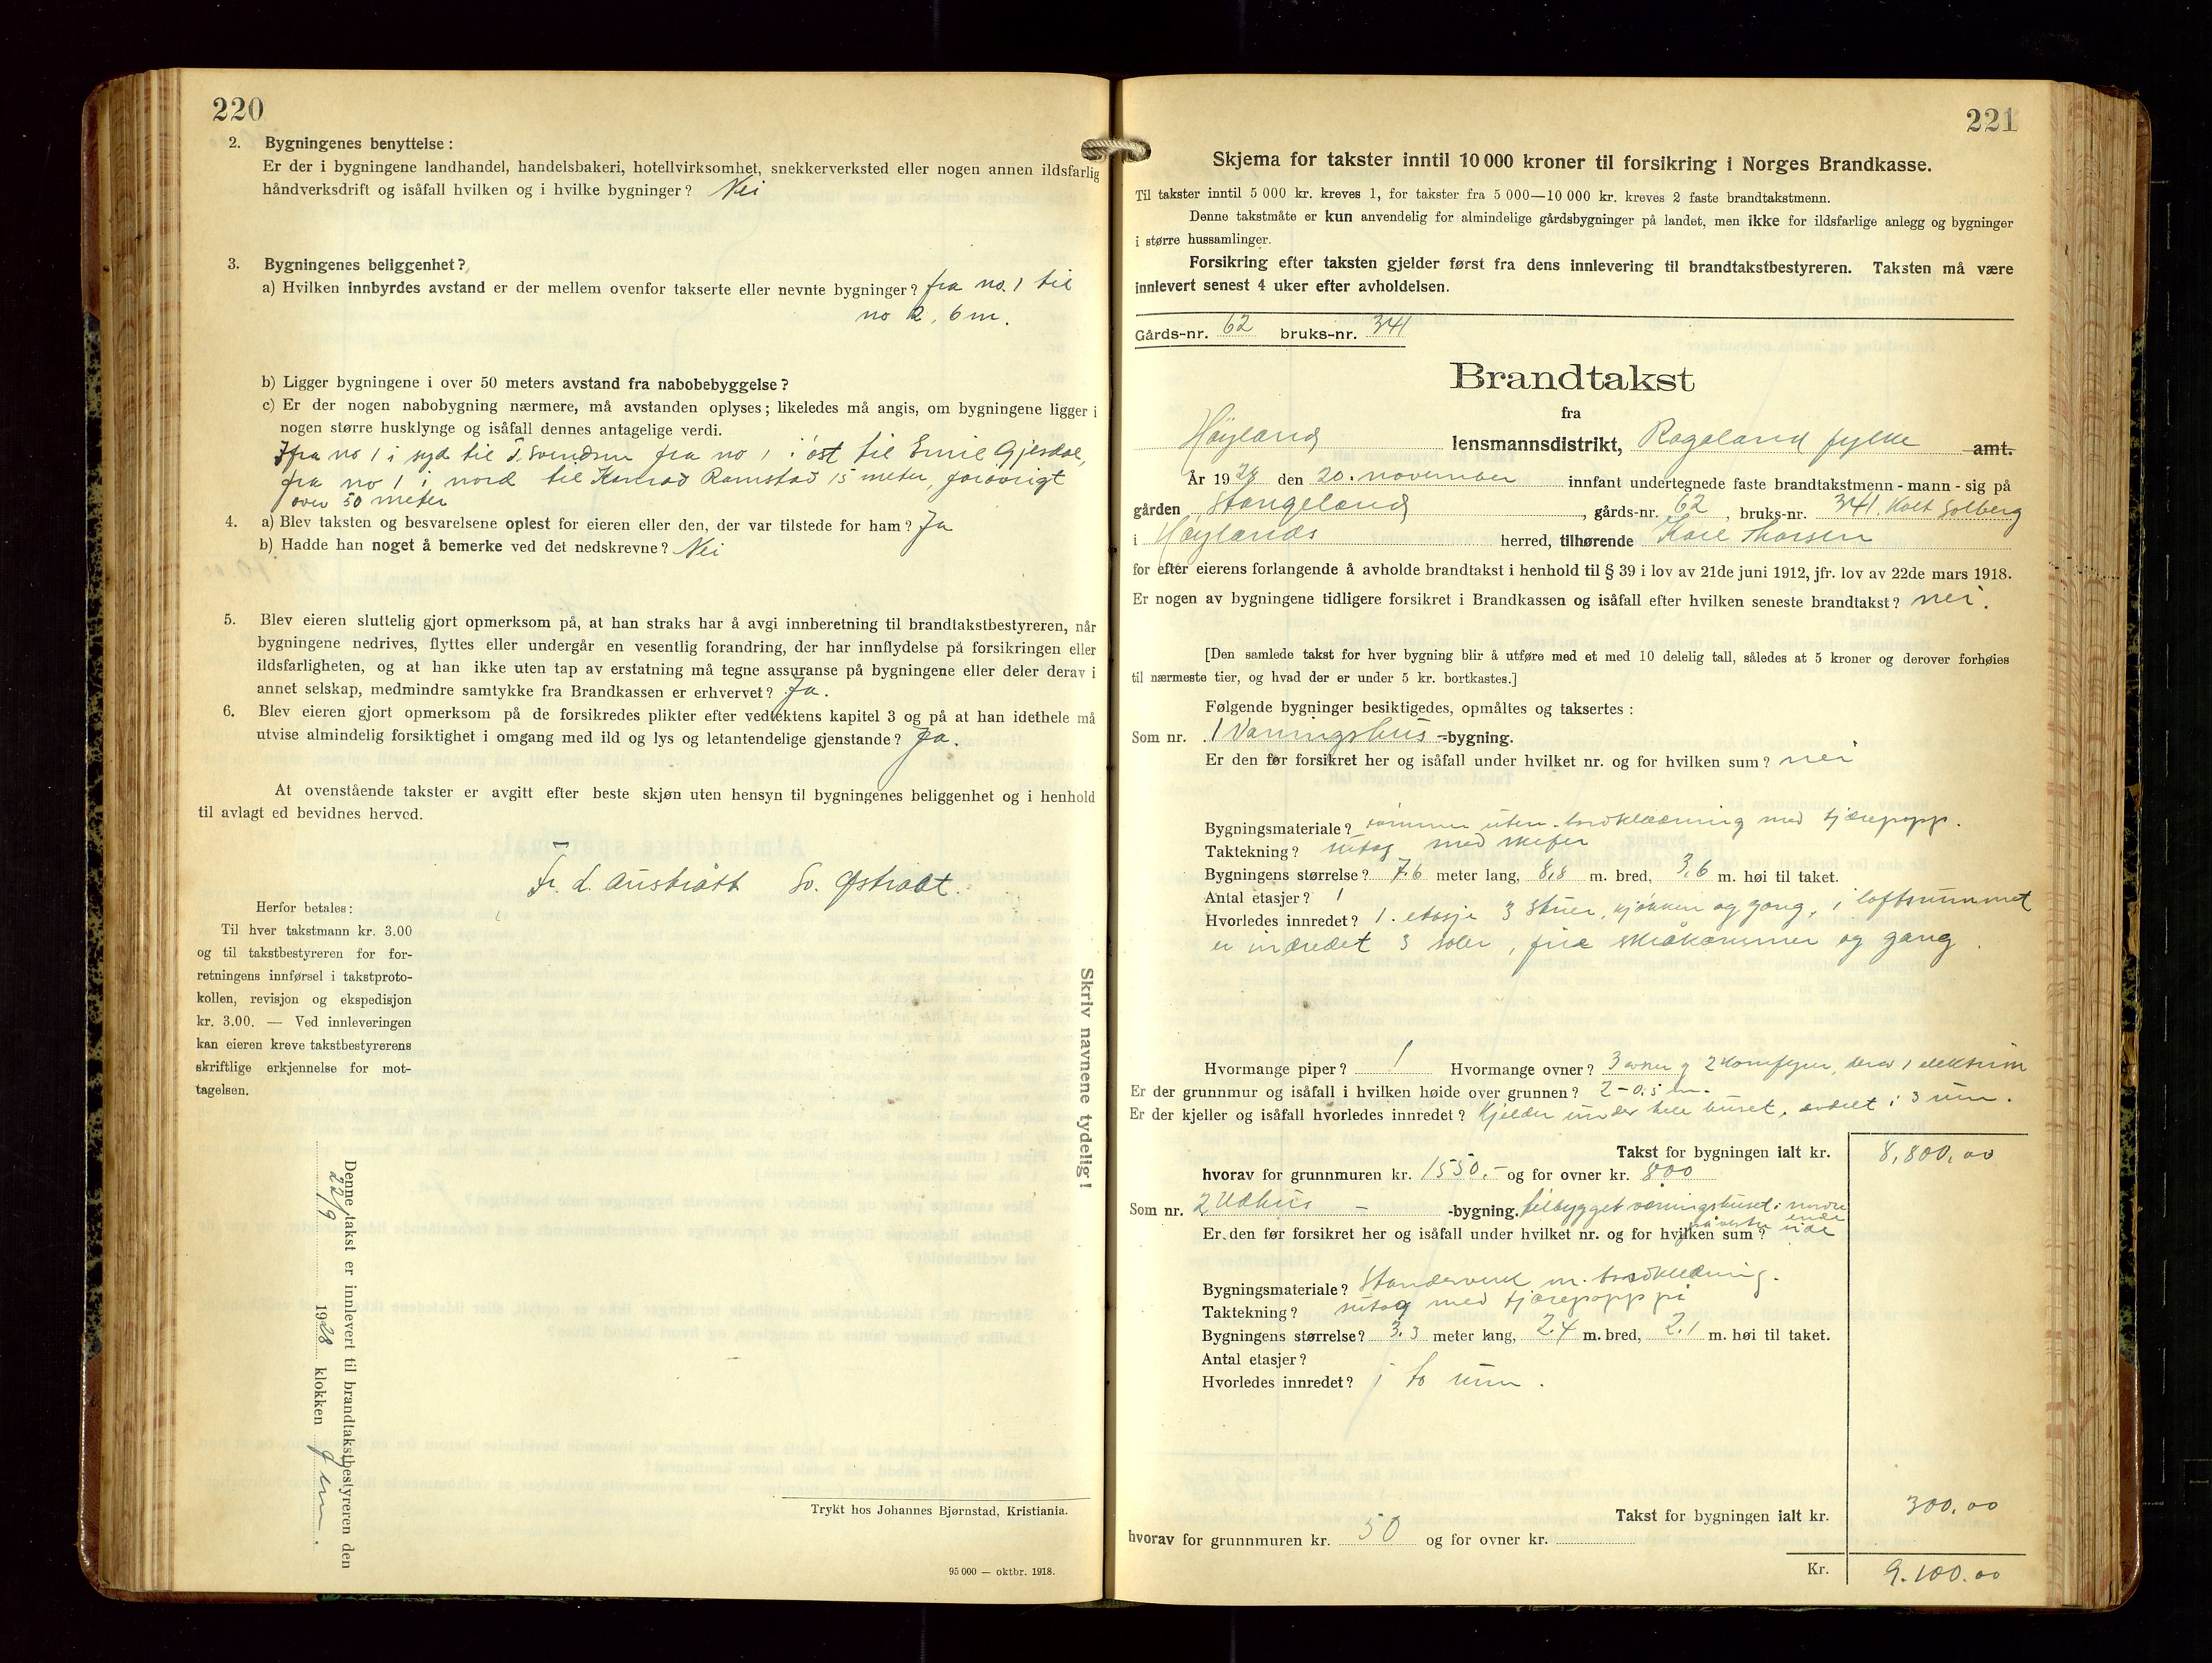 220
2. Bygningenes benyttelse:
Er der i bygningene landhandel, handelsbakeri, hotellvirksomhet, snekkerverksted eller nogen annen ildsfarlig
håndverksdrift og isåfall hvilken og i hvilke bygninger? Nei
3. Bygningenes beliggenhet?
a) Hvilken innbyrdes avstand er der mellem ovenfor takserte eller nevnte bygninger? fra no. 1 til
no 2, 6 m.
b) Ligger bygningene i over 50 meters avstand fra nabobebyggelse?
c) Er der nogen nabobygning nærmere, må avstanden oplyses; likeledes må angis, om bygningene ligger i
nogen større husklynge og isåfall dennes antagelige verdi.
fra no 1 i syd til T. Svendsen fra no 1 i öst til Emil Gjesdal,
fra no 1 i nord til Konrad Ramstad 15 meter, forövrigt
over 50 meter
4. a) Blev taksten og besvarelsene oplest for eieren eller den, der var tilstede for ham? Ja
b) Hadde han noget å bemerke ved det nedskrevne? Nei
5. Blev eieren sluttelig gjort opmerksom på, at han straks har å avgi innberetning til brandtakstbestyreren, når
bygningene nedrives, flyttes eller undergår en vesentlig forandring, der har innflydelse på forsikringen eller
ildsfarligheten, og at han ikke uten tap av erstatning må tegne assuranse på bygningene eller deler derav i
annet selskap, medmindre samtykke fra Brandkassen er erhvervet? Ja.
6. Blev eieren gjort opmerksom på de forsikredes plikter efter vedtektens kapitel 3 og på at han idethele må
utvise almindelig forsiktighet i omgang med ild og lys og letantendelige gjenstande? Ja.
At ovenstående takster er avgitt efter beste skjøn uten hensyn til bygningenes beliggenhet og i henhold
til avlagt ed bevidnes herved.
Fr. L. Austrått Sv. Østraat.
Herfor betales:
Til hver takstmann kr. 3.00
og til takstbestyreren for for-
retningens innførsel i takstproto-
kollen, revisjon og ekspedisjon
kr. 3.00. — Ved innleveringen
kan eieren kreve takstbestyrerens
skriftlige erkjennelse for mot-
tagelsen.
Skriv navnene tydelig!
Denne takst er innlevert til brandtakstbestyreren den
22/9 1928 klokken fm.
Trykt hos Johannes Bjørnstad, Kristiania.
95 000 — oktbr. 1918.
221
Skjema for takster inntil 10 000 kroner til forsikring i Norges Brandkasse.
Til takster inntil 5 000 kr. kreves 1, for takster fra 5 000—10 000 kr. kreves 2 faste brandtakstmenn.
Denne takstmåte er kun anvendelig for almindelige gårdsbygninger på landet, men ikke for ildsfarlige anlegg og bygninger
i større hussamlinger.
Forsikring efter taksten gjelder først fra dens innlevering til brandtakstbestyreren. Taksten må være
innlevert senest 4 uker efter avholdelsen.
Gårds-nr. 62 bruks-nr. 341
Brandtakst
fra
Høyland lensmannsdistrikt, Rogaland fylke amt.
År 1928 den 20. november innfant undertegnede faste brandtakstmenn - mann - sig på
gården Stangeland, gårds-nr. 62, bruks-nr. 341. Solberg
i Høylands herred, tilhørende Karl Thorsen
for efter eierens forlangende å avholde brandtakst i henhold til § 39 i lov av 21de juni 1912, jfr. lov av 22de mars 1918.
Er nogen av bygningene tidligere forsikret i Brandkassen og isåfall efter hvilken seneste brandtakst? nei.
[Den samlede takst for hver bygning blir å utføre med et med 10 delelig tall, således at 5 kroner og derover forhøies
til nærmeste tier, og hvad der er under 5 kr. bortkastes.]
Følgende bygninger besiktigedes, opmåltes og taksertes:
Som nr. 1 Vaaningshus -bygning.
Er den før forsikret her og isåfall under hvilket nr. og for hvilken sum? nei
Bygningsmateriale? tömmer uten bordklædning med tjærepapp.
Taktekning? sutag med skifer
Bygningens størrelse? 7.6 meter lang, 8,8 m. bred, 3,6 m. høi til taket.
Antal etasjer? 1
Hvorledes innredet? 1. etasje 3 stuer, kjökken og gang, i loftsrummet
er indredet 3 soler, fire skråkammer og gang.
Hvormange piper? 1 Hvormange ovner? 3 ovner og 2 komfyrer, derav 1 elektrisk
Er der grunnmur og isåfall i hvilken høide over grunnen? 2-0,5 m.
Er der kjeller og isåfall hvorledes innredet? Kjelder under hele huset, avdelt i 3 rum.
Takst for bygningen ialt kr. 8,800,00
hvorav for grunnmuren kr. 1550.- og for ovner kr. 800
Som nr. 2 Udhus - -bygning. tilbygget vaaningshuset i nordre ende
på vestre side
Er den før forsikret her og isåfall under hvilket nr. og for hvilken sum?
Bygningsmateriale? Standerverk m. bordklædning.
Taktekning? sutag med tjærepapp på
Bygningens størrelse? 3.3 meter lang, 2.4 m. bred, 2.1 m. høi til taket.
Antal etasjer?
Hvorledes innredet? i to rum.
Takst for bygningen ialt kr. 300,00
hvorav for grunnmuren kr. 50 og for ovner kr.
Kr. 9.100.00